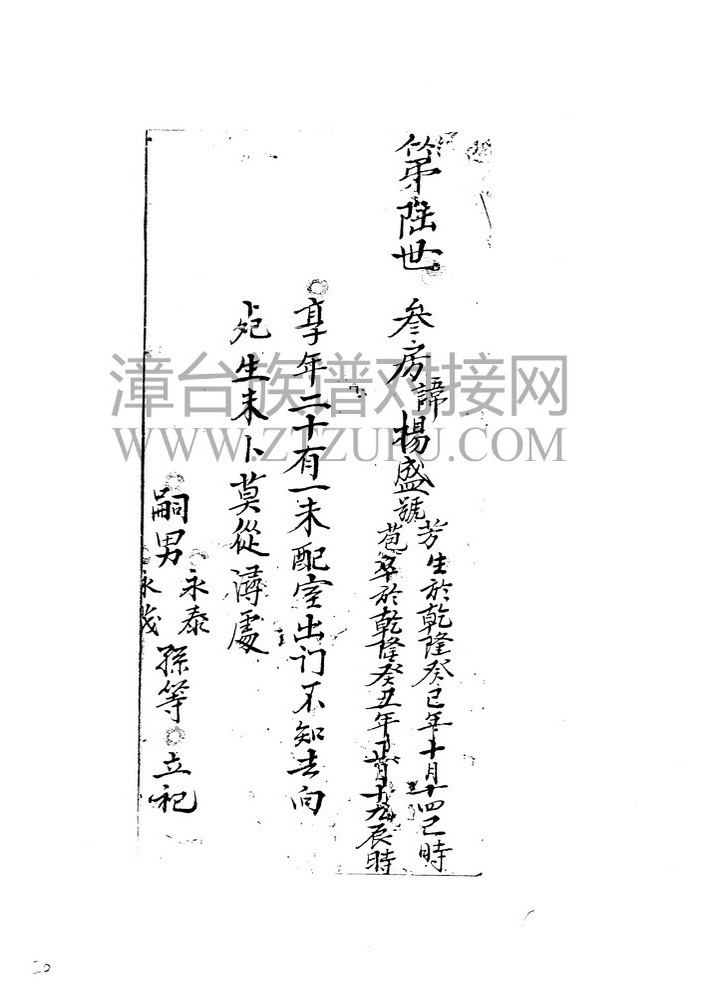 第陸世 叁房諱楊盛號
芳生於乾隆癸巳年十月十四巳時
苞卒於乾隆癸丑年月十九辰時
享年二十有一未配室出门不知去向
卜兆生未卜莫從潯處
嗣男 永泰 永茂 孫等立祀
漳台族谱对接网
WWW.ZTZUPU.COM
20